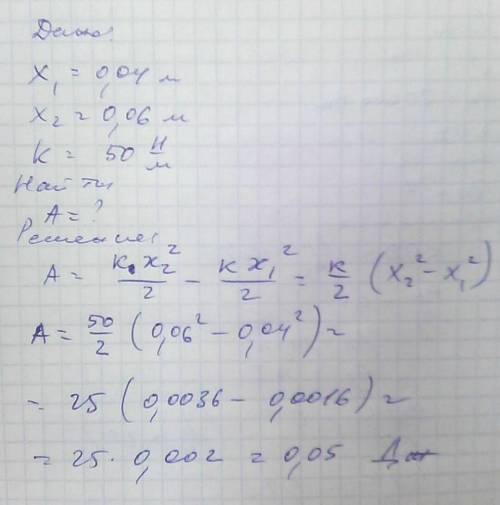 Дано:
x₁ = 0,04 м
x₂ = 0,06 м
K = 50 Н/м
Найти
A = ?
Решение:
A = K·x₂²/2 − Kx₁²/2 = K/2 (x₂² − x₁²)
A = 50/2 (0,06² − 0,04²) =
= 25 (0,0036 − 0,0016) =
= 25 · 0,002 = 0,05 Дж